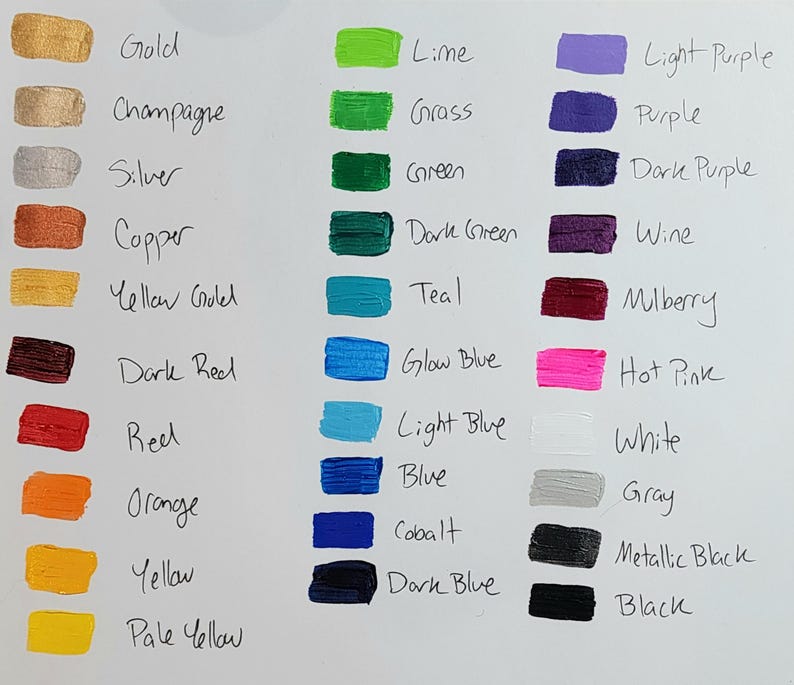 Gold
Champagne
Silver
Copper
Yellow Gold
Dark Red
Red
Orange
Yellow
Pale Yellow
Lime
Grass
Green
Dark Green
Teal
Glow Blue
Light Blue
Blue
Cobalt
Dark Blue
Light Purple
Purple
Dark Purple
Wine
Mulberry
Hot Pink
White
Gray
Metallic Black
Black